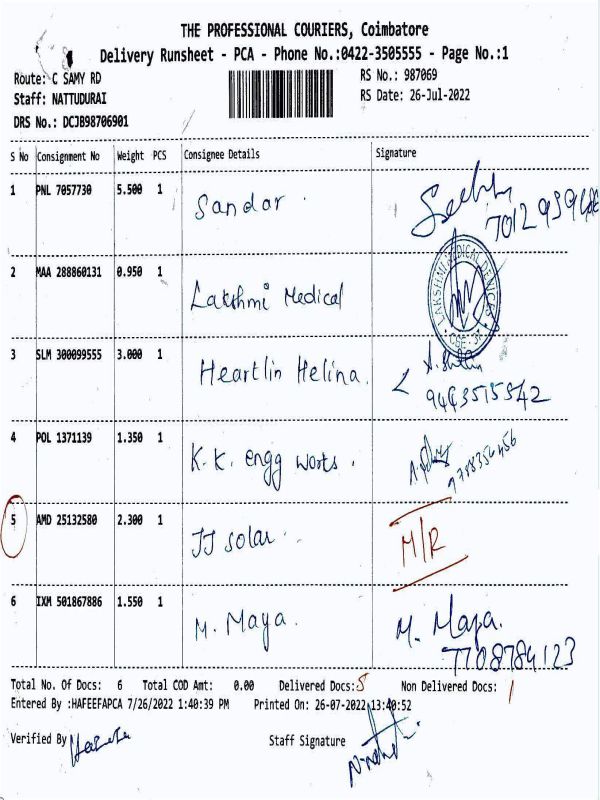 THE PROFESSIONAL COURIERS, Coimbatore
Delivery Runsheet - PCA - Phone No.:0422-3505555 - Page No.:1
Route: C SAMY RD
RS No.: 987069
Staff: NATTUDURAI
RS Date: 26-Jul-2022
DRS No.: DCJB98706901
S No Consignment No Weight PCS Consignee Details Signature
1 PNL 7057730 5.500 1 Sandar
2 MAA 288860131 0.950 1 Lakshmi Medical LAKSHMI MEDICAL
3 SLM 300099555 3.000 1 Heartlin Helina.
9443515542
4 POL 1371139 1.350 1 K.K. engg works.
9788354456
5 AMD 25132580 2.300 1 JJ solar M/R
6 IXM 501867886 1.550 1 M. Maya. M. Maya.
7708784123
Total No. Of Docs: 6 Total COD Amt: 0.00 Delivered Docs: 5 Non Delivered Docs: 1
Entered By :HAFEEFAPCA 7/26/2022 1:40:39 PM Printed On: 26-07-2022 13:40:52
Verified By Staff Signature